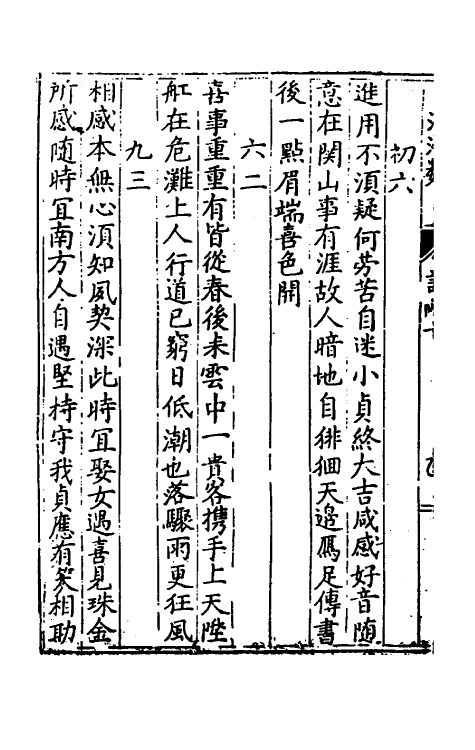 初六
進用不須疑何劳苦自迷小貞終大吉咸感好音随
意在関山事有涯故人暗地自徘徊天邉鴈足傳書
後一點眉端喜色開
六二
喜事重重有皆從春後来雲中一貴客携手上天陛
舡在危灘上人行道已窮日低潮也落驟雨更狂風
九三
相感本無心須知夙契深此時冝娶女遇喜見珠金
所感随時冝南方人自遇堅持守我貞應有笑相助